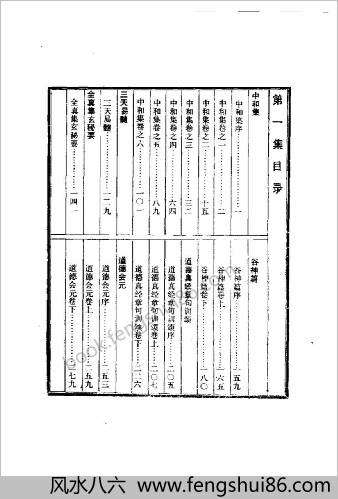 第一集目录
中和集
中和集序………一
中和集卷之一………二
中和集卷之二………十五
中和集卷之三………三二
中和集卷之四………六四
中和集卷之五………八九
中和集卷之六………一〇一
三天易髓
三天易髓………一二九
全真集玄秘要
全真集玄秘要………一四一
谷神篇
谷神篇序………一五九
谷神篇卷上………一六五
谷神篇卷下………一八〇
道德真经章句训颂
道德真经章句训颂序………二〇五
道德真经章句训颂卷上………二〇七
道德真经章句训颂卷下………二二六
道德会元
道德会元序………二五九
道德会元卷上………二五九
道德会元卷下………二七九
book.fengshui86.com
风水八六－www.fengshui86.com